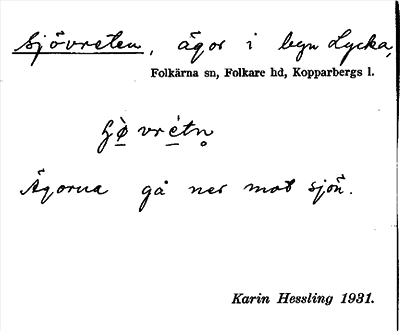 Sjövreten, ägor i byn Lycka,
Folkärna sn, Folkare hd, Kopparbergs l.
Ägorna gå ner mot sjön.
Karin Hessling 1931.